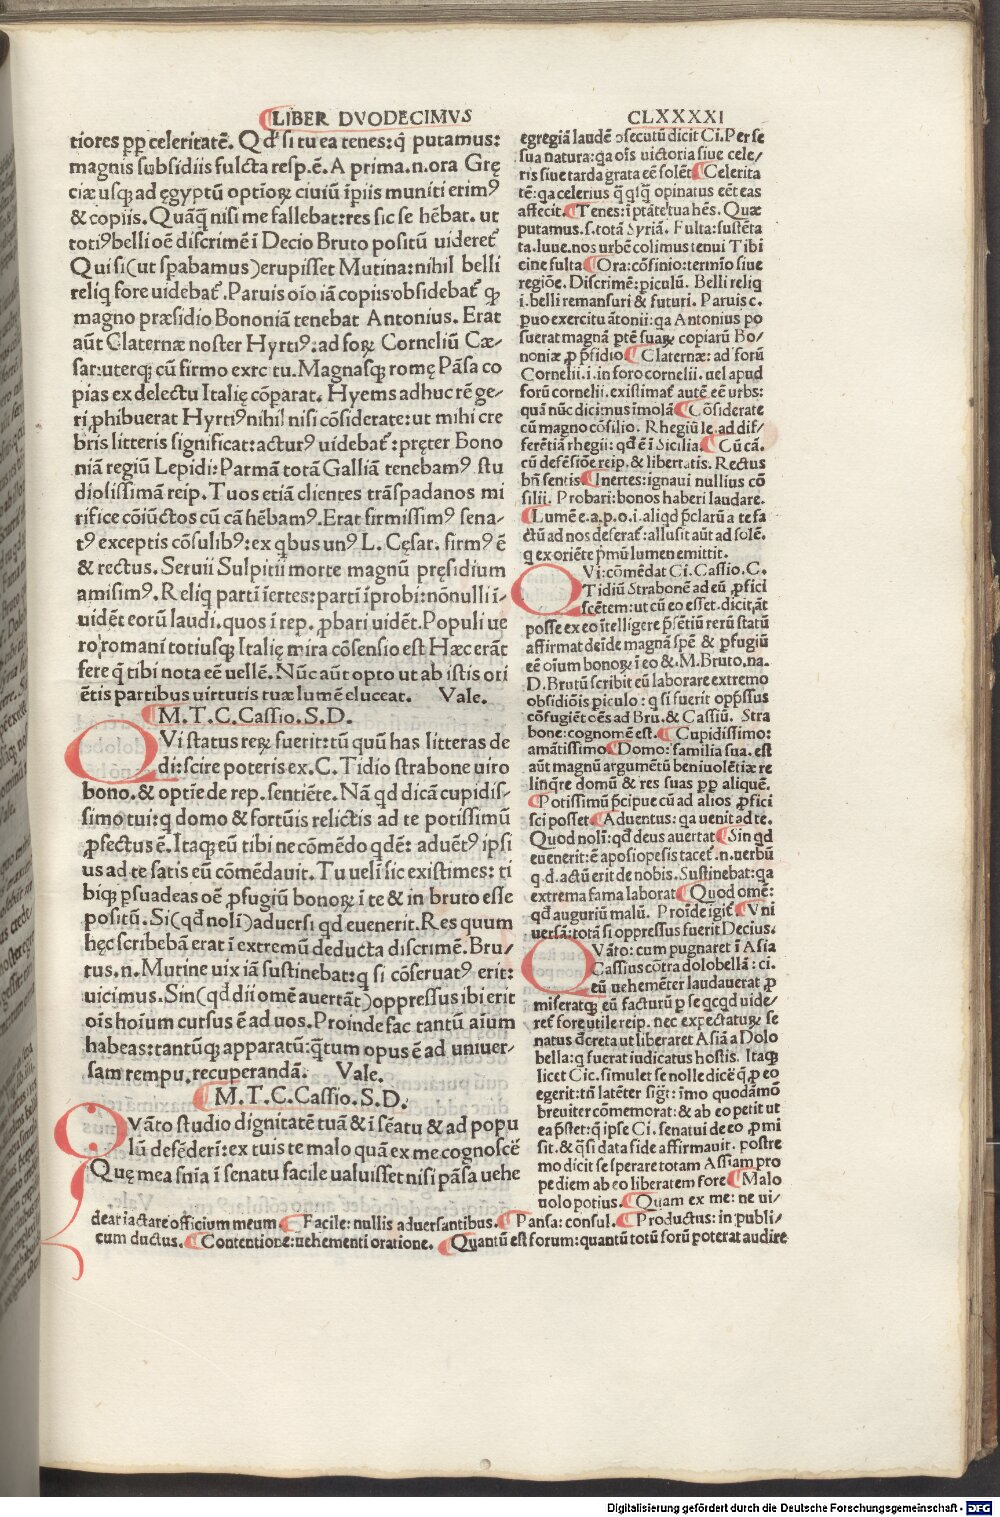 LIBER DVODECIMVS
CLXXXXI
tiores pp celeritatē. Qđ si tu ea tenes: q̄ putamus:
magnis subsidiis fulcta resp. ē. A prima .n. ora Grę
ciæ usq; ad ęgyptū optioꝝ ciuiū īpiis muniti erimꝰ
& copiis. Quāq̄ nisi me fallebat: res sic se hēbat. ut
totiꝰ belli oē discrimē ī Decio Bruto positū uideret̄
Qui si (ut spabamus) erupisset Mutina: nihil belli
reliq fore uidebat̄. Paruis oīo iā copiis obsidebat̄ q;
magno præsidio Bononiā tenebat Antonius. Erat
aūt Claternæ noster Hyrtiꝰ: ad foꝝ Corneliū Cæ-
sar: uterq; cū firmo exrc tu. Magnasq; romę Pāsa co
pias ex delectu Italię cōparat. Hyems adhuc rē ge-
ri ꝓhibuerat Hyrtiꝰ nihil nisi cōsiderate: ut mihi cre
bris litteris significat: acturꝰ uidebat̄: pręter Bono
niā regiū Lepidi: Parmā totā Galliā tenebamꝰ stu
diosissimā reip. Tuos etiā clientes trāspadanos mi
rifice cōiūctos cū cā hēbamꝰ. Erat firmissimꝰ sena-
tꝰ exceptis cōsulibꝰ: ex qbus unꝰ L. Cęsar. firmꝰ ē
& rectus. Seruii Sulpitii morte magnū pręsidium
amisimꝰ. Reliq partī īertes: partī īprobi: nōnulli ī-
uidēt eorū laudi. quos ī rep. ꝓbari uidēt. Populi ue
ro romani totiusq; Italię mira cōsensio est Hæc erāt
fere q̄ tibi nota eē uellē. Nūc aūt opto ut ab istis ori
ētis partibus uirtutis tuæ lumē eluceat. Vale.
M. T. C. Cassio. S. D.
QVi status reꝝ fuerit: tū quū has litteras de
di: scire poteris ex. C. Tidio strabone uiro
bono. & optīe de rep. sentiēte. Nā qd dicā cupidis-
simo tui: q domo & fortūis relictis ad te potissimū
ꝓfectus ē. Itaq; eū tibi ne cōmēdo qdē: aduētꝰ ipsi
us ad te satis eū cōmēdauit. Tu uelī sic existimes: ti
biq; psuadeas oē ꝓfugiū bonoꝝ ī te & in bruto esse
positū. Si (qđ nolī) aduersi qd euenerit. Res quum
hęc scribebā erat ī extremū deducta discrimē. Bru-
tus .n. Mutine uix iā sustinebat: q si cōseruatꝰ erit:
uicimus. Sin (qđ dii omē auertāt) oppressus ibi erit
oīs hoīum cursus ē ad uos. Proinde fac tantū aīum
habeas: tantūq; apparatū: q̄tum opus ē ad uniuer-
sam rempu. recuperandā. Vale.
M. T. C. Cassio. S. D.
QVāto studio dignitatē tuā & ī sēatu & ad popu
lū defēderī: ex tuis te malo quā ex me cognoscē
Quę mea snīa ī senatu facile ualuisset nisi pāsa uehe
egregiā laudē ↄsecutū dicit Ci. Per se
sua natura: qa oīs uictoria siue cele-
ris siue tarda grata eē solēt Celerita
tē: qa celerius q̄ qsq̄ opinatus eēt eas
affecit. Tenes: ī ptāte tua hēs. Quæ
putamus. s. totā Syriā. Fulta: sustēta
ta. Iuue. nos urbē colimus tenui Tibi
cine fulta Ora: cōfinio: termīo siue
regiōe. Discrimē: piculū. Belli reliq
i. belli remansuri & futuri. Paruis c.
puo exercitu ātonii: qa Antonius po
suerat magnā ptē suaꝝ copiarū Bo-
noniæ ꝓ p̄sidio Claternæ: ad forū
Cornelii. i. in foro cornelii. uel apud
forū cornelii. existimat̄ autē eē urbs:
quā nūc dicimus imolā Cōsiderate
cū magno cōsilio. Rhegiū le. ad dif-
ferētiā rhegii: qđ ē ī Sicilia. Cū cā.
cū defēsiōe reip. & libertatis. Rectus
bn̄ sentis Inertes: ignaui nullius cō
silii. Probari: bonos haberi laudare.
Lumē e. a. p. o. i. aliqd p̄clarū a te fa
ctū ad nos deferat̄: allusit aūt ad solē.
q ex oriēte p̄mū lumen emittit.
QVi: cōmēdat Ci. Cassio. C.
Tidiū Strabonē ad eū ꝓfici
scētem: ut cū eo esset. dicit, āt
posse ex eo ītelligere p̄sētiū rerū statū
affirmat deīde magnā spē & ꝓfugiū
eē oīum bonoꝝ ī eo & M. Bruto. na.
D. Brutū scribit eū laborare extremo
obsidiōis piculo: q si fuerit opp̄ssus
cōfugiēt cēs ad Bru. & Cassiū. Stra
bone: cognomē est. Cupidissimo:
amātissimo Domo: familia sua. est
aūt magnū argumētū beniuolētiæ re
linq̄re domū & res suas pp aliquē.
Potissimū p̄cipue cū ad alios ꝓfici
sci posset Aduentus: qa uenit ad te.
Quod nolī: qđ deus auertat Sin qd
euenerit: ē aposiopesis tacet̄ .n. uerbū
q. d. actū erit de nobis. Sustinebat: qa
extrema fama laborat Quod omē:
qđ auguriū malū. Proīde igit̄ Vni
uersā: totā si oppressus fuerit Decius.
QVāto: cum pugnaret ī Asia
Cassius cōtra dolobellā: ci.
eū uehemēter laudauerat ꝓ
miseratq; eū facturū p se qcqd uide-
ret̄ fore utile reip. nec expectatuꝝ se
natus dcreta ut liberaret Asiā a Dolo
bella: q fuerat iudicatus hostis. Itaq;
licet Cic. simulet se nolle dicē q̄ p eo
egerit: tn̄ latēter sigt̄: īmo quodāmō
breuiter cōmemorat: & ab eo petit ut
ea p̄stet: q̄ ipse Ci. senatui de eo ꝓmi
sit. & q̄si data fide affirmauit. postre
mo dicit se sperare totam Assiam pro
pe diem ab eo liberatem fore Malo
uolo potius. Quam ex me: ne ui-
dear iactare officium meum Facile: nullis aduersantibus. Pansa: consul. Productus: in publi-
cum ductus. Contentione: uehementi oratione. Quantū est forum: quantū totū forū poterat audire
Digitalisierung gefördert durch die Deutsche Forschungsgemeinschaft - DFG